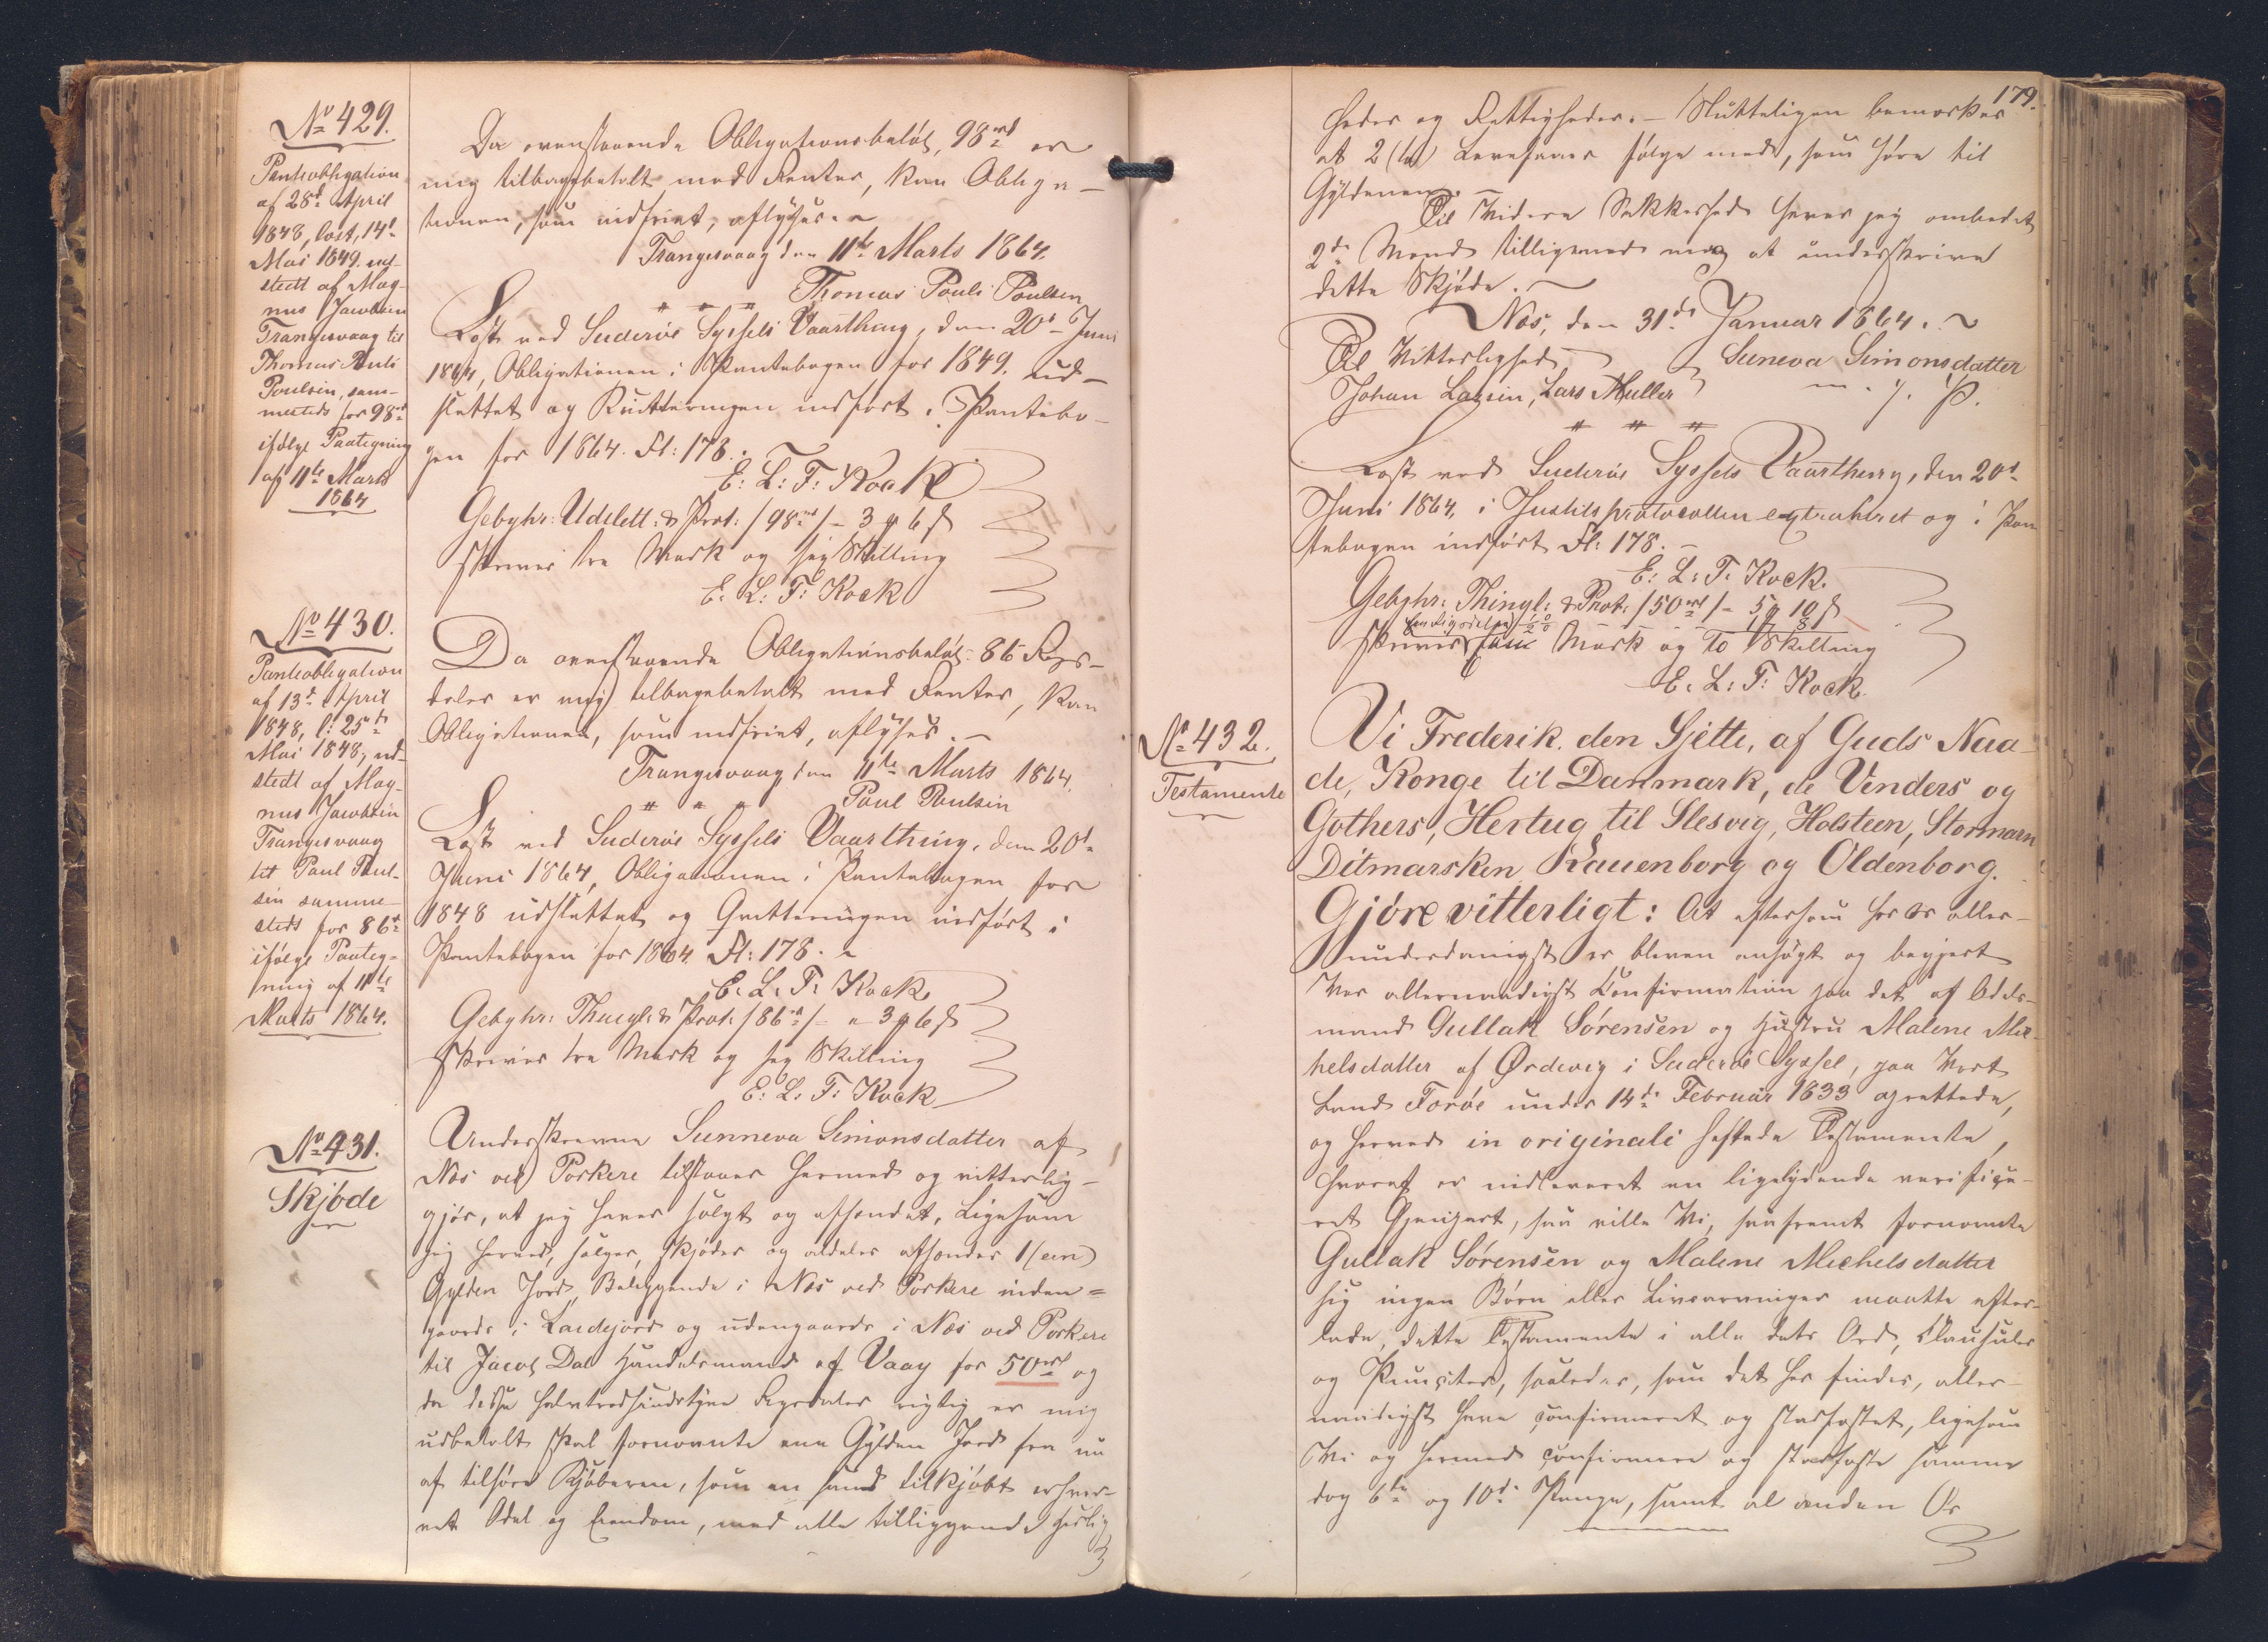 No 429.
Panteobligation
af 28de April
1848, læst, 14de
Mai 1849. ud-
stedt af Mag-
nus Jacobsen
Trangisvaag til
Thomas Pauli
Poulsen, sam-
mesteds for 98rd
ifölge Paategning
af 11te Marts
1864
Da ovenstaaende Obligationsbelöb, 98rd er
mig tilbagebetalt med Renter, kan Obliga-
tionen, som indfriet, aflyses.
Trangisvaag den 11te Marts 1864.
Thomas Pauli Poulsen
Læst ved Suderöe Syssels Vaarthing, den 20de Juni
1864, Obligationen i Pantebogen for 1849. ud-
slettet og Qvitteringen indfört i Pantebo-
gen for 1864. Fl: 178.
E: L: F: Kock
Gebyhr: Udslett: & Prot: /98rd/ - 3 # 6 s
skriver tre Mark og sex Skilling
E: L: F: Kock
No 430.
Panteobligation
af 13de April
1848, l: 25de
Mai 1848, ud-
stedt af Mag-
nus Jacobsen
Trangisvaag
til Paul Poul-
sen samme-
steds for 86rd
ifölge Paateg-
ning af 11te
Marts 1864.
Da ovenstaaende Obligationsbelöb: 86 Rigs-
daler er mig tilbagebetalt med Renter, kan
Obligationen, som indfriet, aflyses.
Trangisvaag den 11te Marts 1864.
Paul Poulsen
Læst ved Suderöe Syssels Vaarthing, den 20de
Juni 1864, Obligationen i Pantebogen for
1848 udslettet og Qvitteringen indfört i
Pantebogen for 1864. Fl: 178.
E: L: F: Kock
Gebyhr: Thingl: & Prot: /86rd/ - 3 # 6 s
skriver tre Mark og sex Skilling
E: L: F: Kock
No 431.
Skjöde
Underskrevne Sunneva Simonsdatter af
Næs ved Porkere tilstaaer hermed og vitterlig-
gjör, at jeg haver solgt og afhændet, Ligesom
jeg herved, sælger, skjöder og aldeles afhænder 1 (een)
Gylden Jord, Beliggende i Næs ved Porkere inden=
gaards i Laidejord og udengaards i Næs ved Porkere
til Jacob Dal Handelsmand af Vaag for 50rd og
da disse halvtredsindstyve Rigsdaler rigtig er mig
udbetalt skal fornævnte ene Gylden Jord fra nu
af tilhöre Kjöberen, som en sand tilkjöbt erhver-
vet Odel og Eiendom, med alle tilliggende Herlig
179.
heder og Rettigheder. - Slutteligen bemærkes
at 2 (to) Lammer fölge med, som höre til
Gyldenen. -
Til Videre Sikkerhed haver jeg ombedet
2de Mænd tilligemed mig at underskrive
dette Skjöde.
Næs, den 31de Januar 1864.
Til Vitterlighed
Suneva Simonsdatter
Johan Larsen, Lars Müller
m. f. P.
Læst ved Suderöe Syssels Vaarthing, den 20de
Juni 1864, i Justitsprotocollen extraheret og i Pan
tebogen indfört Fl: 178. -
E: L: F: Kock.
Gebyhr: Thingl: & Prot: /50rd/ - 5 # 10 s
skriver fem Mark og to Skilling
E: L: F: Kock.
No 432.
Testamente
Vi Frederik den Sjette, af Guds Naa-
de, Konge til Danmark, de Venders og
Gothers, Hertug til Slesvig, Holsteen, Stormarn
Ditmarsken Lauenborg og Oldenborg.
Gjöre vitterligt: At eftersom hos Os aller-
underdanigst er bleven ansögt og begjert
Vor allernaadigst Confirmation paa det af Odels-
mand Gullak Sörensen og Hustru Malene Mic-
helsdatter af Ördevig i Suderöe Syssel, paa Vort
Land Færöe under 14de Februar 1833 oprettede,
og herved in originali heftede Testamente,
hvoraf er indleveret en ligelydende verifice-
ret Gjenpart, saa ville Vi, saafremt fornævnte
Gullak Sörensen og Malene Michelsdatter
sig ingen Börn eller Livsarvinger maatte efter-
lade, dette Testamente i alle dets Ord, Clausuler
og Puncter, saaledes, som det her findes, aller-
naadigst have confirmeret og stadfæstet, ligesom
Vi og hermed confirmere og stadfæste samme
dog 6te og 10de Penge, samt al anden Os